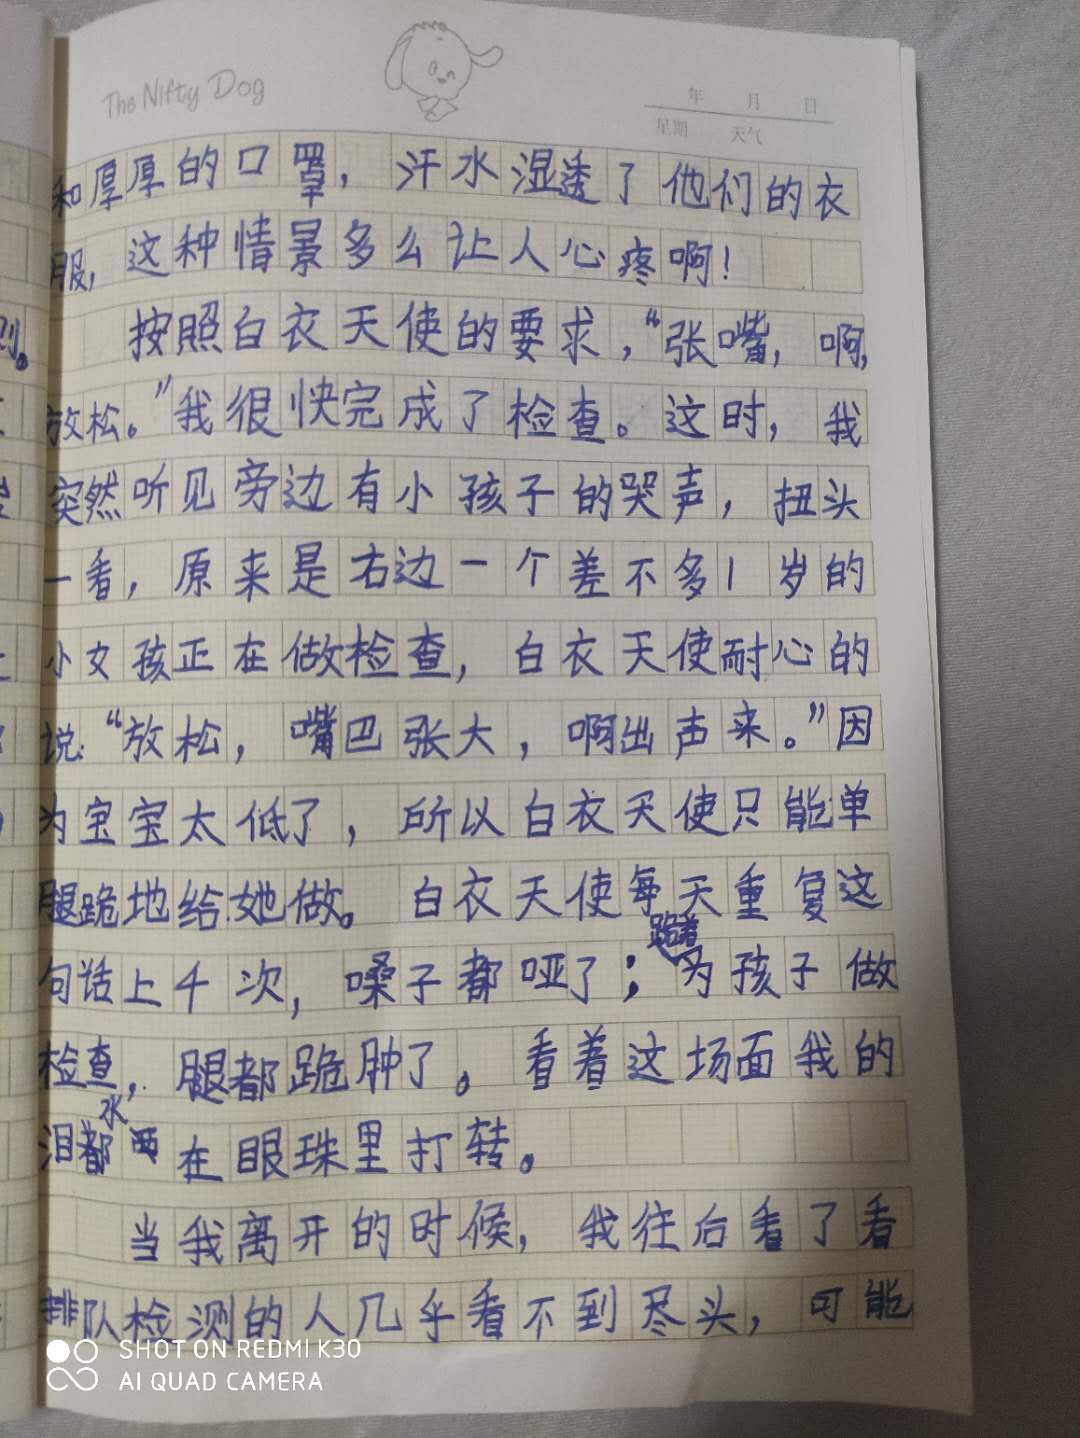 The Nifty Dog
年 月 日
星期 天气
和厚厚的口罩，汗水湿透了他们的衣
服，这种情景多么让人心疼啊！
按照白衣天使的要求，“张嘴，啊，
放松。”我很快完成了检查。这时，我
突然听见旁边有小孩子的哭声，扭头
一看，原来是右边一个差不多1岁的
小女孩正在做检查，白衣天使耐心的
说：“放松，嘴巴张大，啊出声来。”因
为宝宝太低了，所以白衣天使只能单
腿跪地给她做。白衣天使每天重复这
句话上千次，嗓子都哑了；跪着为孩子做
检查，腿都跪肿了。看着这场面我的
泪水都在眼珠里打转。
当我离开的时候，我往后看了看
排队检测的人几乎看不到尽头，可能
SHOT ON REDMI K30
AI QUAD CAMERA